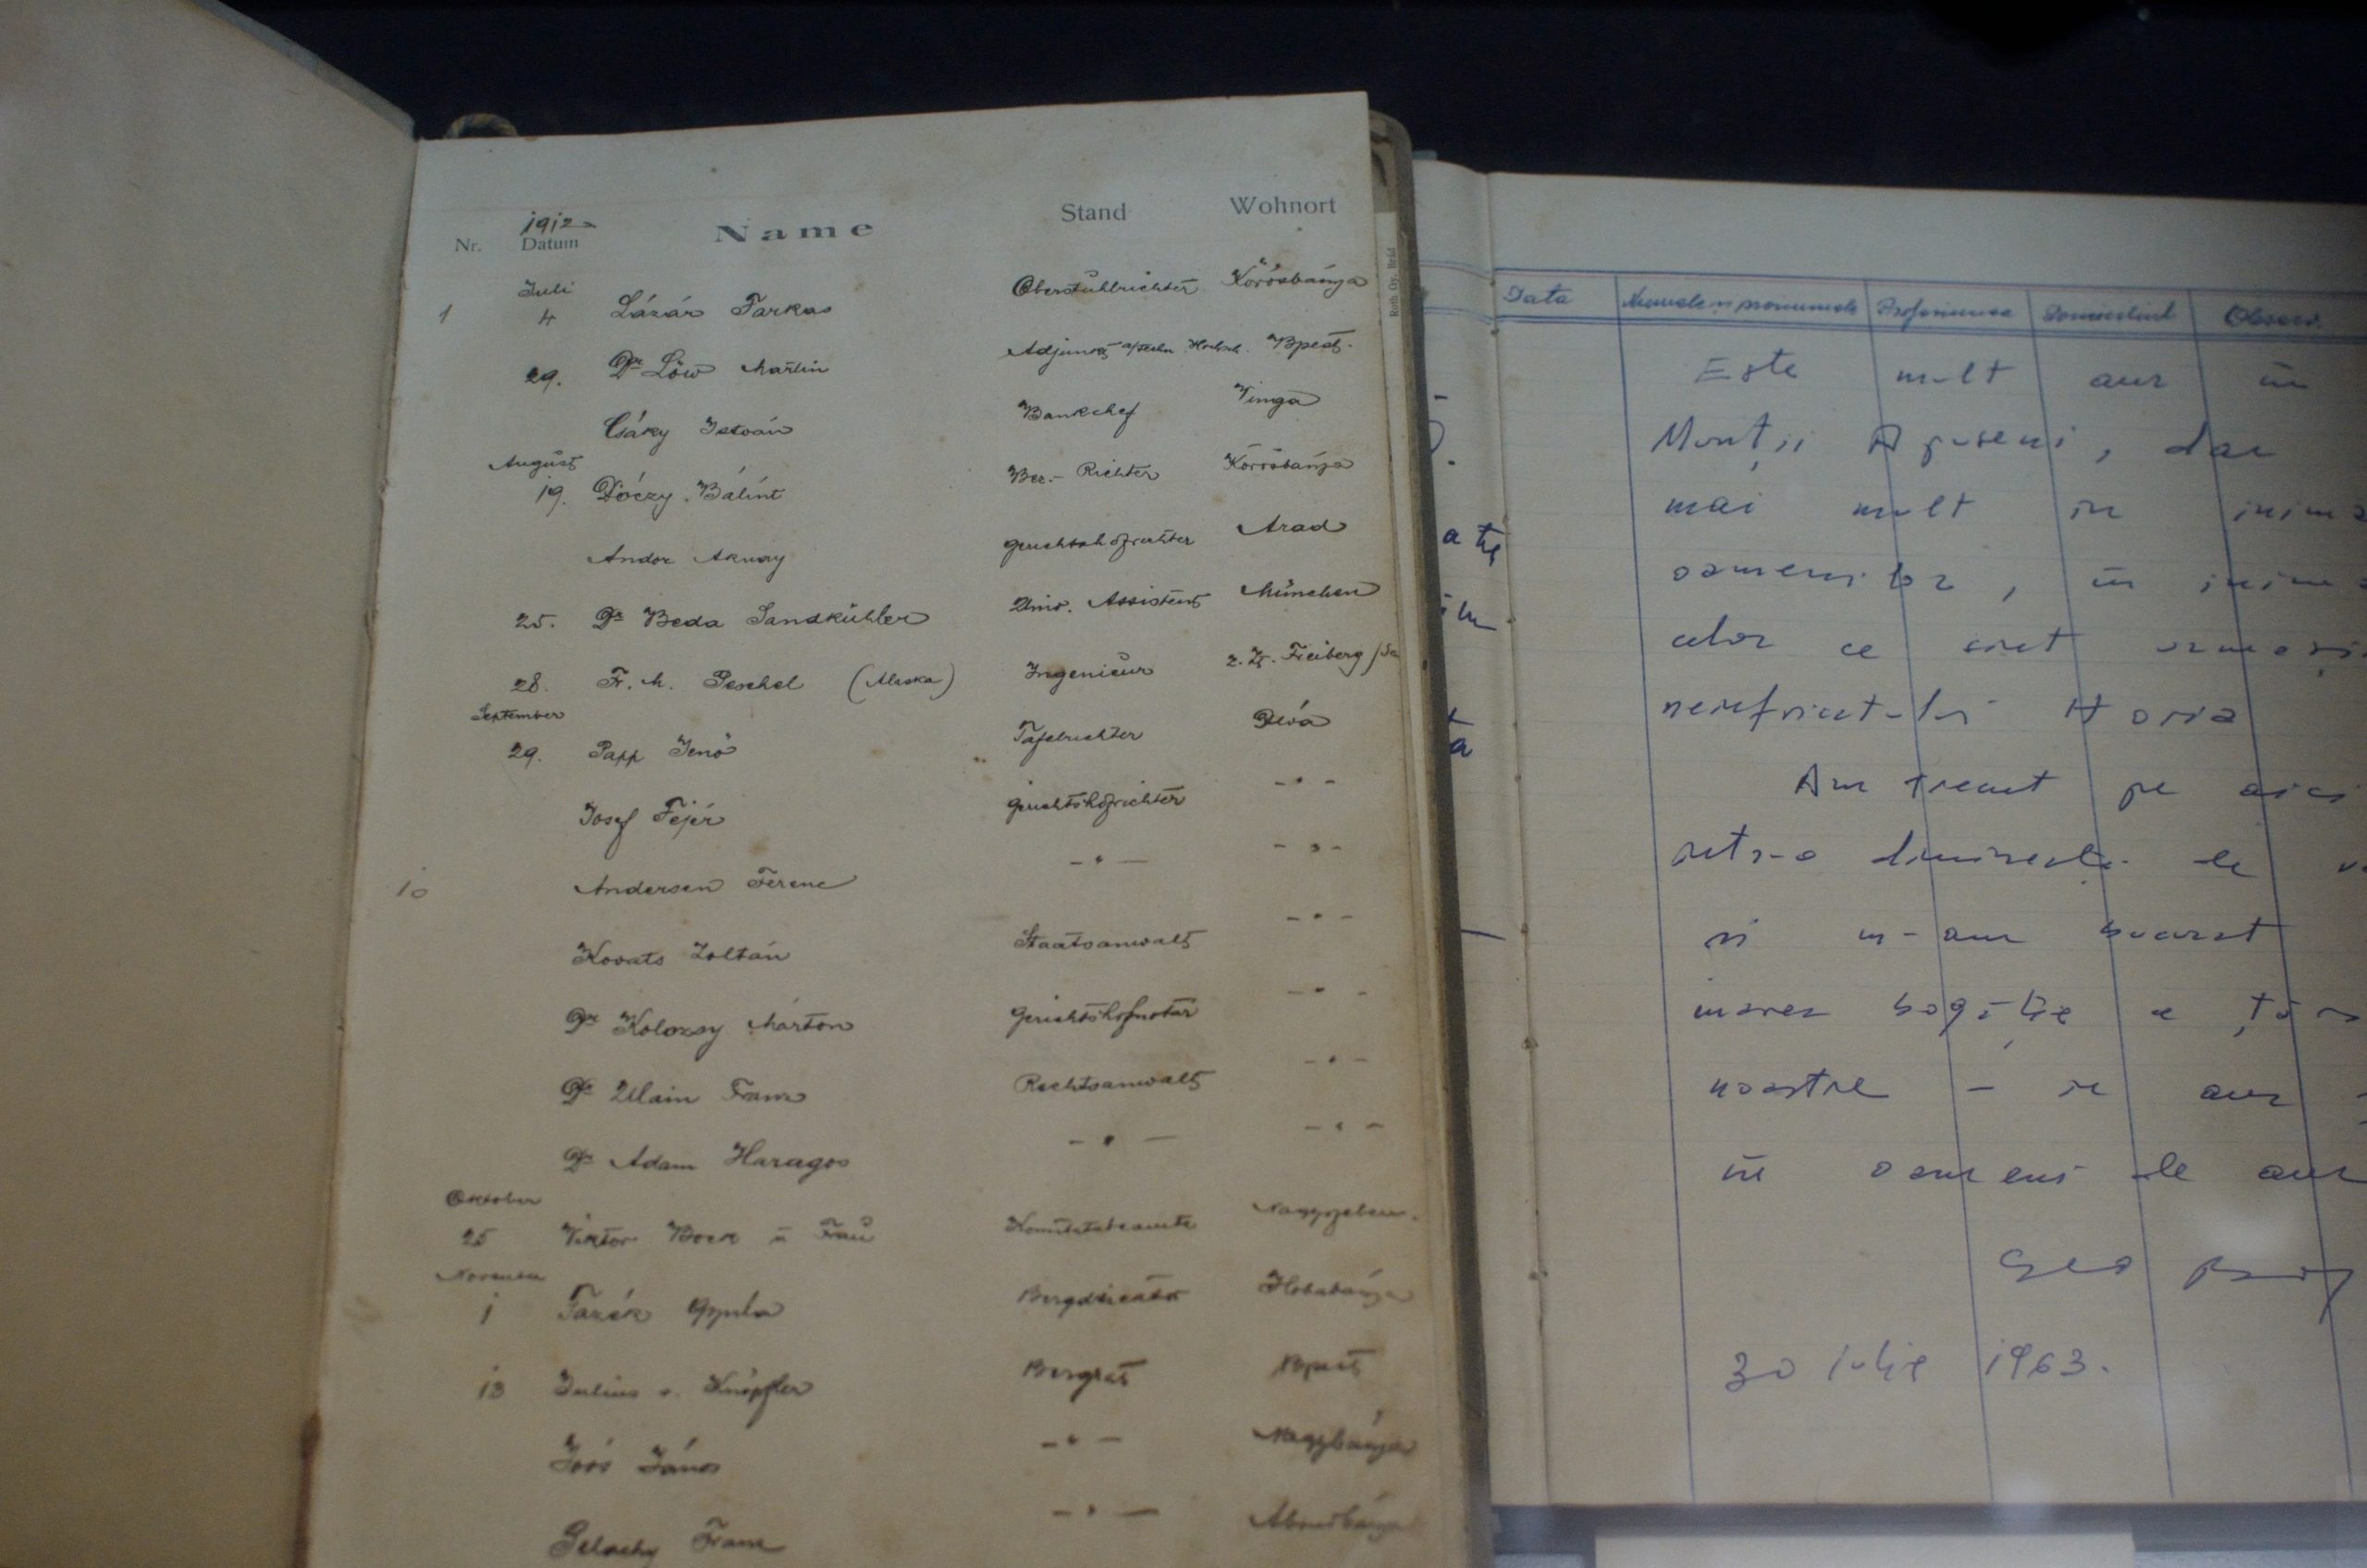 1912
Nr. Datum Name Stand Wohnort
Juli
1 4 Lázár Farkas Oberstuhlrichter Körösbánya
29. Dr Löw Martin Adjunkt Bpest.
Csáky István Bankchef Vinga
August
19. Dóczy Bálint Bez.- Richter Körösbánya
Andor Aknay Gerichtshofrichter Arad
25. Dr Beda Sandkühler Univ. Assistent München
28. Fr. M. Peschel (Alaska) Ingenieur z. Zt. Freiberg /Sa
September
29. Papp Jenő Tafelrichter Déva
Josef Fejér Gerichtshofrichter -"-
10 Andersen Ferenc -"- -"-
Kovats Zoltán Staatsanwalt -"-
Dr Kolozsy Márton Gerichtshofnotar -"-
Dr Franz Rechtsanwalt -"-
Dr Adam Haragos -"- -"-
Oktober
25 Viktor Bock u Frau Komitatsbeamte Nagyszeben.
November
1 Gyula
13 Julius v. Knöpfler Bergrat Bpest
Joós János -"- Nagybánya
Franz -"- Abrudbánya
Roth Gy. Brád
Data Numele și pronumele Profesiunea Domiciliul Observ.
Este mult aur în
Munții Apuseni, dar
mai mult în inima
oamenilor, în inima
celor ce sînt urmași
neînfricatului Horia
Am trecut pe aici
într-o dimineață de
și m-am bucurat
marea bogăție a țării
noastre – în aur
în oameni de aur
Geo Bog
30 iulie 1963.